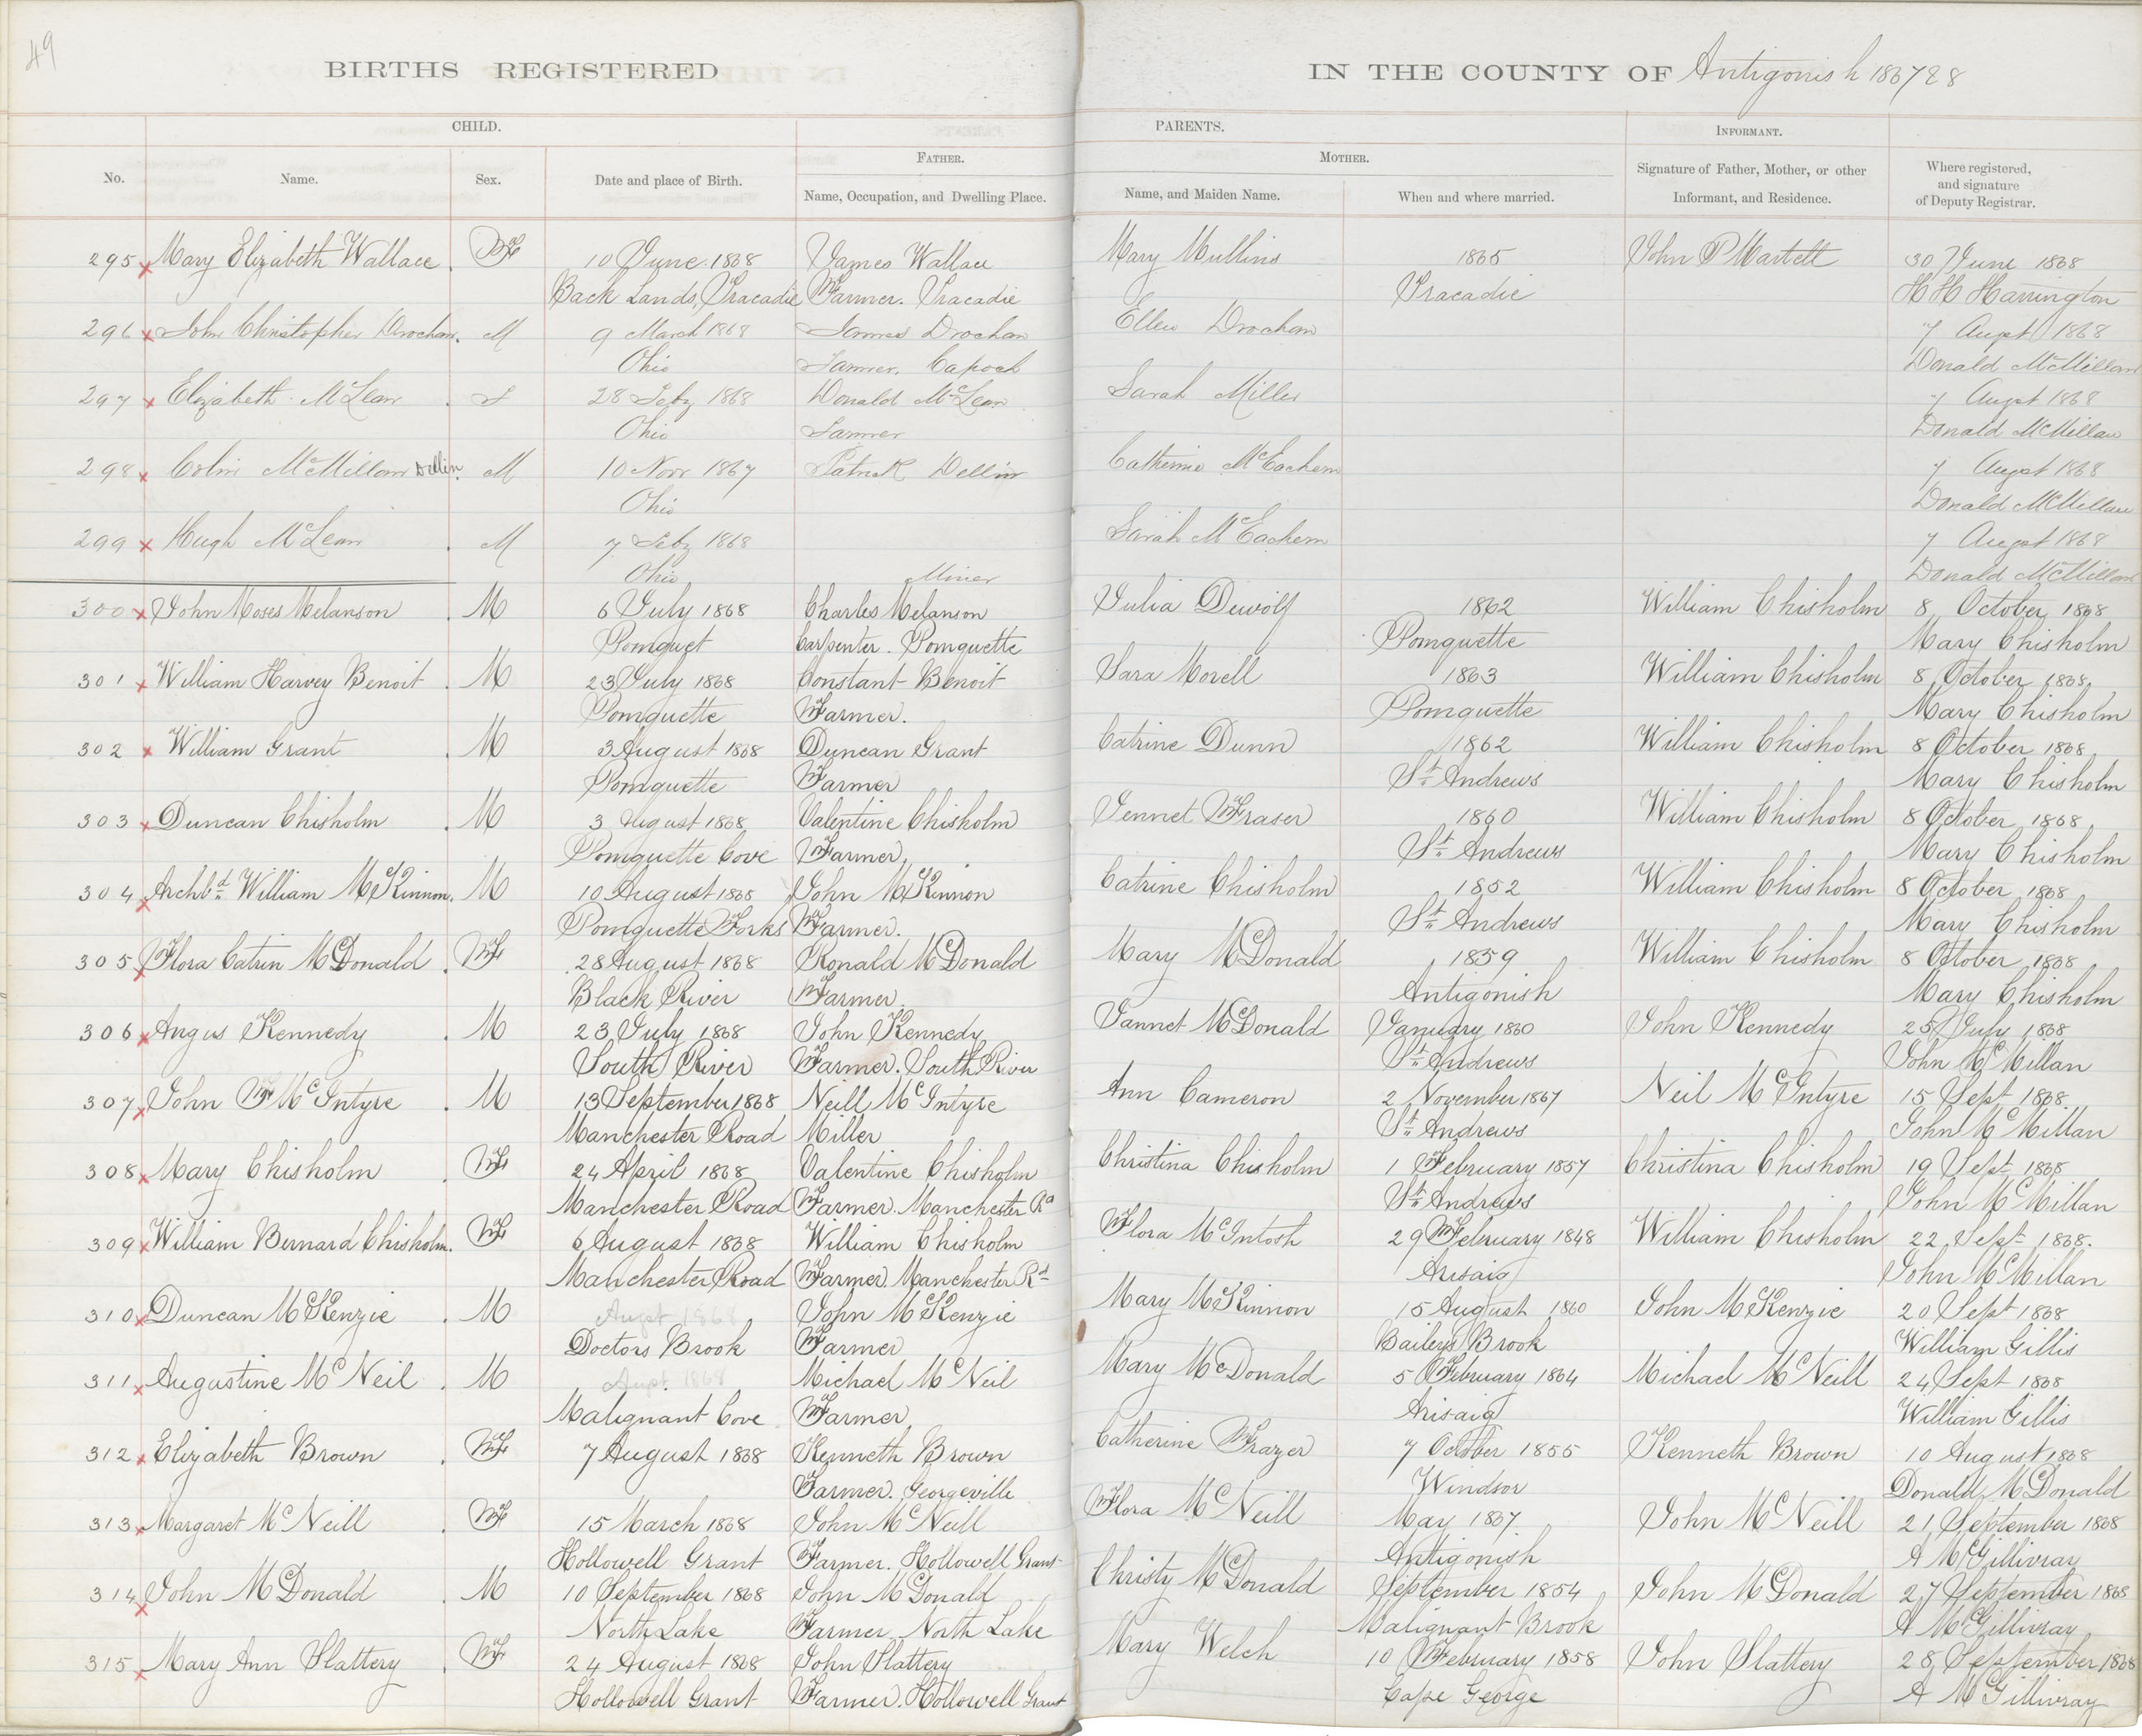 49
BIRTHS REGISTERED
IN THE COUNTY OF Antigonish 1867 & 8
CHILD.
PARENTS.
INFORMANT.
FATHER.
MOTHER.
No.
Name.
Sex.
Date and place of Birth.
Name, Occupation, and Dwelling Place.
Name, and Maiden Name.
When and where married.
Signature of Father, Mother, or other
Informant, and Residence.
Where registered,
and signature
of Deputy Registrar.
295 Mary Elizabeth Wallace F 10 June 1868 James Wallace Mary Mullins 1865 John P Martell 30 June 1868
Back Lands, Tracadie Farmer. Tracadie Tracadie H H Harrington
296 John Christopher Drochan M 9 March 1868 James Drochan Ellen Drochan 7 Augst 1868
Ohio Farmer. Donald McMillan
297 Elizabeth McLean F 28 Feby 1868 Donald McLean Sarah Miller 7 Augst 1868
Ohio Farmer Donald McMillan
298 Colin McMillan Dellin M 10 Novr 1867 Patrick Dellin Catherine McEachern 7 Augst 1868
Ohio Donald McMillan
299 Hugh McLean M 7 Feby 1868 Sarah McEachern 7 Augst 1868
Ohio Miner Donald McMillan
300 John Moses Melanson M 6 July 1868 Charles Melanson Julia Dewolf 1862 William Chisholm 8 October 1868
Pomquet Carpenter. Pomquette Pomquette Mary Chisholm
301 William Harvey Benoit M 23 July 1868 Constant Benoit Sara Morell 1863 William Chisholm 8 October 1868
Pomquette Farmer. Pomquette Mary Chisholm
302 William Grant M 3 August 1868 Duncan Grant Catrine Dunn 1862 William Chisholm 8 October 1868
Pomquette Farmer St. Andrews Mary Chisholm
303 Duncan Chisholm M 3 August 1868 Valentine Chisholm Jennet Fraser 1860 William Chisholm 8 October 1868
Pomquette Cove Farmer St. Andrews Mary Chisholm
304 Archbd William McKinnon M 10 August 1868 John McKinnon Catrine Chisholm 1852 William Chisholm 8 October 1868
Pomquette Forks Farmer. St. Andrews Mary Chisholm
305 Flora Catrin McDonald F 28 August 1868 Ronald McDonald Mary McDonald 1859 William Chisholm 8 October 1868
Black River Farmer. Antigonish Mary Chisholm
306 Angus Kennedy M 23 July 1868 John Kennedy Jannet McDonald January 1860 John Kennedy 25 July 1868
South River Farmer. South River St. Andrews John McMillan
307 John F McIntyre M 13 September 1868 Neill McIntyre Ann Cameron 2 November 1867 Neil McIntyre 15 Sept 1868
Manchester Road Miller St. Andrews John McMillan
308 Mary Chisholm F 24 April 1868 Valentine Chisholm Christina Chisholm 1 February 1857 Christina Chisholm 19 Sept 1868
Manchester Road Farmer. Manchester Rd St. Andrews John McMillan
309 William Bernard Chisholm F 6 August 1868 William Chisholm Flora McIntosh 29 February 1848 William Chisholm 22 Sept 1868
Manchester Road Farmer. Manchester Rd Arisaig John McMillan
310 Duncan McKenzie M Augst 1868 John McKenzie Mary McKinnon 15 August 1860 John McKenzie 20 Sept 1868
Doctors Brook Farmer Baileys Brook William Gillis
311 Augustine McNeil M Augst 1868 Michael McNeil Mary McDonald 5 February 1864 Michael McNeill 24 Sept 1868
Malignant Cove Farmer Arisaig William Gillis
312 Elizabeth Brown F 7 August 1868 Kenneth Brown Catherine Frazer 7 October 1855 Kenneth Brown 10 August 1868
Farmer. Georgeville Windsor Donald McDonald
313 Margaret McNeill F 15 March 1868 John McNeill Flora McNeill May 1867 John McNeill 21 September 1868
Hollowell Grant Farmer. Hollowell Grant Antigonish A McGillivray
314 John McDonald M 10 September 1868 John McDonald Christy McDonald September 1854 John McDonald 27 September 1868
North Lake Farmer North Lake Malignant Brook A McGillivray
315 Mary Ann Slattery F 24 August 1868 John Slattery Mary Welch 10 February 1858 John Slattery 28 September 1868
Hollowell Grant Farmer. Hollowell Grant Cape George A McGillivray